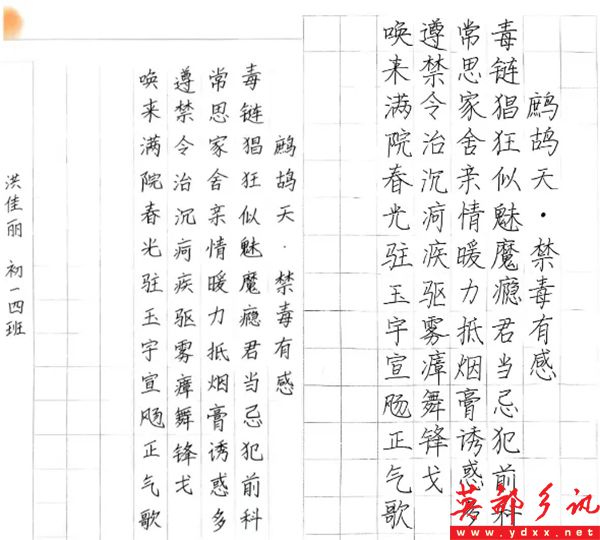 鹧鸪天·禁毒有感
毒链猖狂似魅魔瘾君当忌犯前科
常思家舍亲情暖力抵烟膏诱惑多
遵禁令治沉疴疾驱雾瘴舞锋戈
唤来满院春光驻玉宇宣飏正气歌
鹧鸪天·禁毒有感
毒链猖狂似魅魔瘾君当忌犯前科
常思家舍亲情暖力抵烟膏诱惑多
遵禁令治沉疴疾驱雾瘴舞锋戈
唤来满院春光驻玉宇宣飏正气歌
洪佳丽 初一四班
英都乡讯
www.ydxx.net